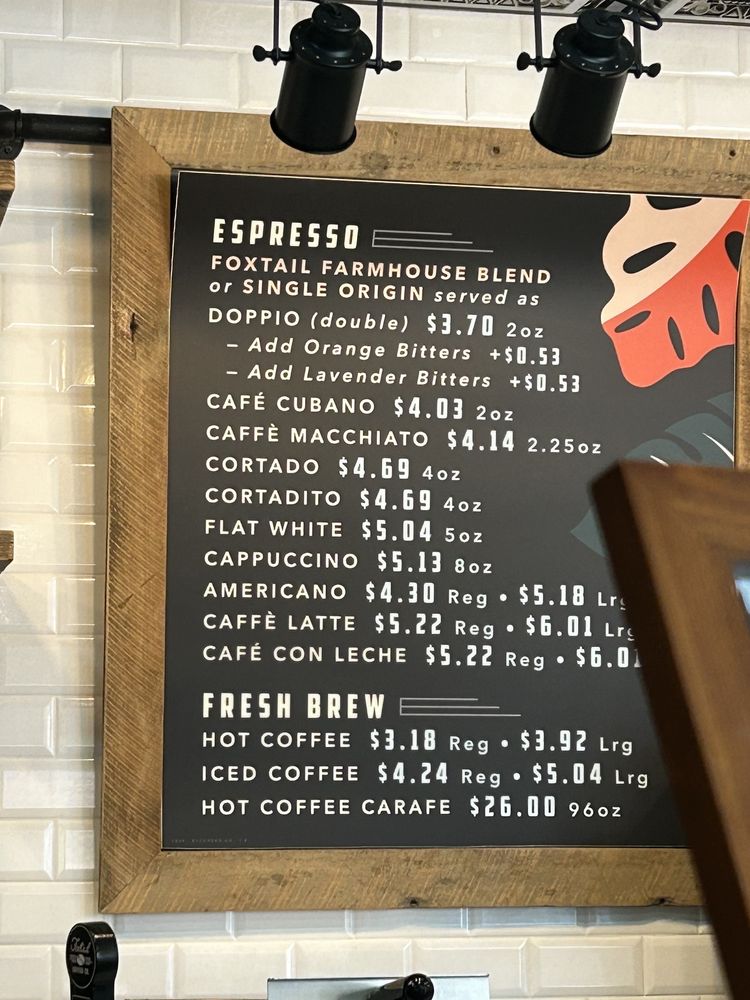 ESPRESSO
FOXTAIL FARMHOUSE BLEND
or SINGLE ORIGIN served as
DOPPIO (double) $3.70 2oz
– Add Orange Bitters +$0.53
– Add Lavender Bitters +$0.53
CAFÉ CUBANO $4.03 2oz
CAFFÈ MACCHIATO $4.14 2.25oz
CORTADO $4.69 4oz
CORTADITO $4.69 4oz
FLAT WHITE $5.04 5oz
CAPPUCCINO $5.13 8oz
AMERICANO $4.30 Reg • $5.18 Lrg
CAFFÈ LATTE $5.22 Reg • $6.01 Lrg
CAFÉ CON LECHE $5.22 Reg • $6.01
FRESH BREW
HOT COFFEE $3.18 Reg • $3.92 Lrg
ICED COFFEE $4.24 Reg • $5.04 Lrg
HOT COFFEE CARAFE $26.00 96oz